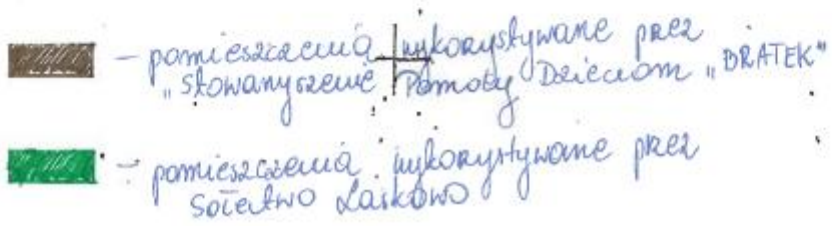 - pomieszczenia wykorzystywane przez
"Stowarzyszenie Pomocy Dzieciom "BRATEK"
- pomieszczenia wykorzystywane przez
Sołectwo Laskowo